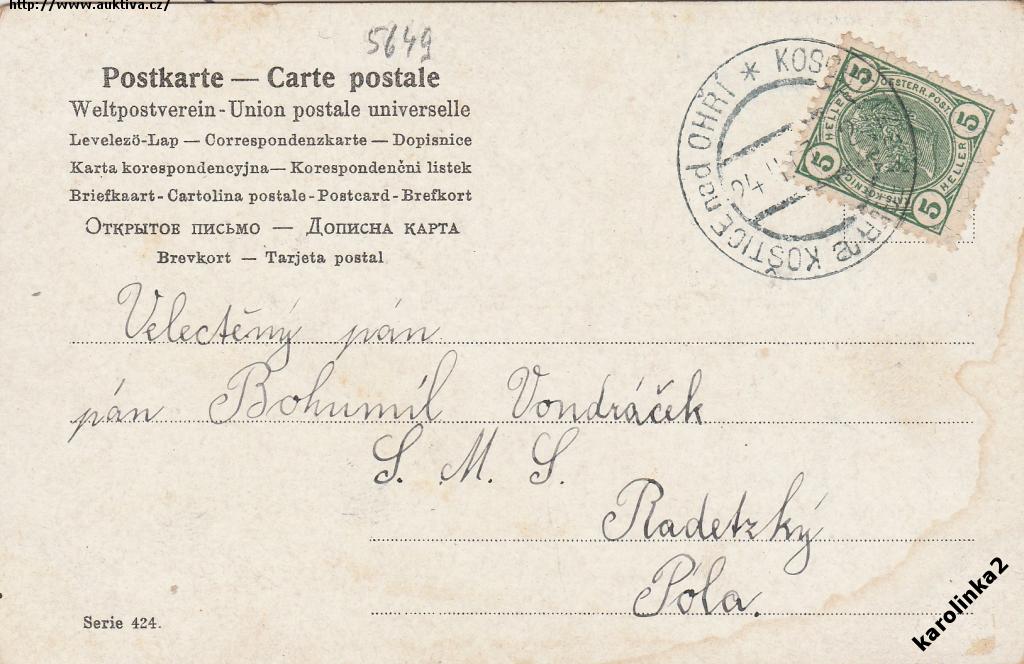 http://www.auktiva.cz/
5649
Postkarte — Carte postale
Weltpostverein - Union postale universelle
Levelezö-Lap — Correspondenzkarte — Dopisnice
Karta korespondencyjna — Korespondenčni listek
Briefkaart - Cartolina postale - Postcard - Brefkort
Открытое письмо — Дописна карта
Brevkort — Tarjeta postal
KOŠTICE nad OHŘÍ *
24
OESTERR. POST
5 5 5 5
HELLER HELLER
Velectěný pán
pán Bohumíl Vondráček
S. M. S.
Radetzký
Póla.
Serie 424.
karolinka2